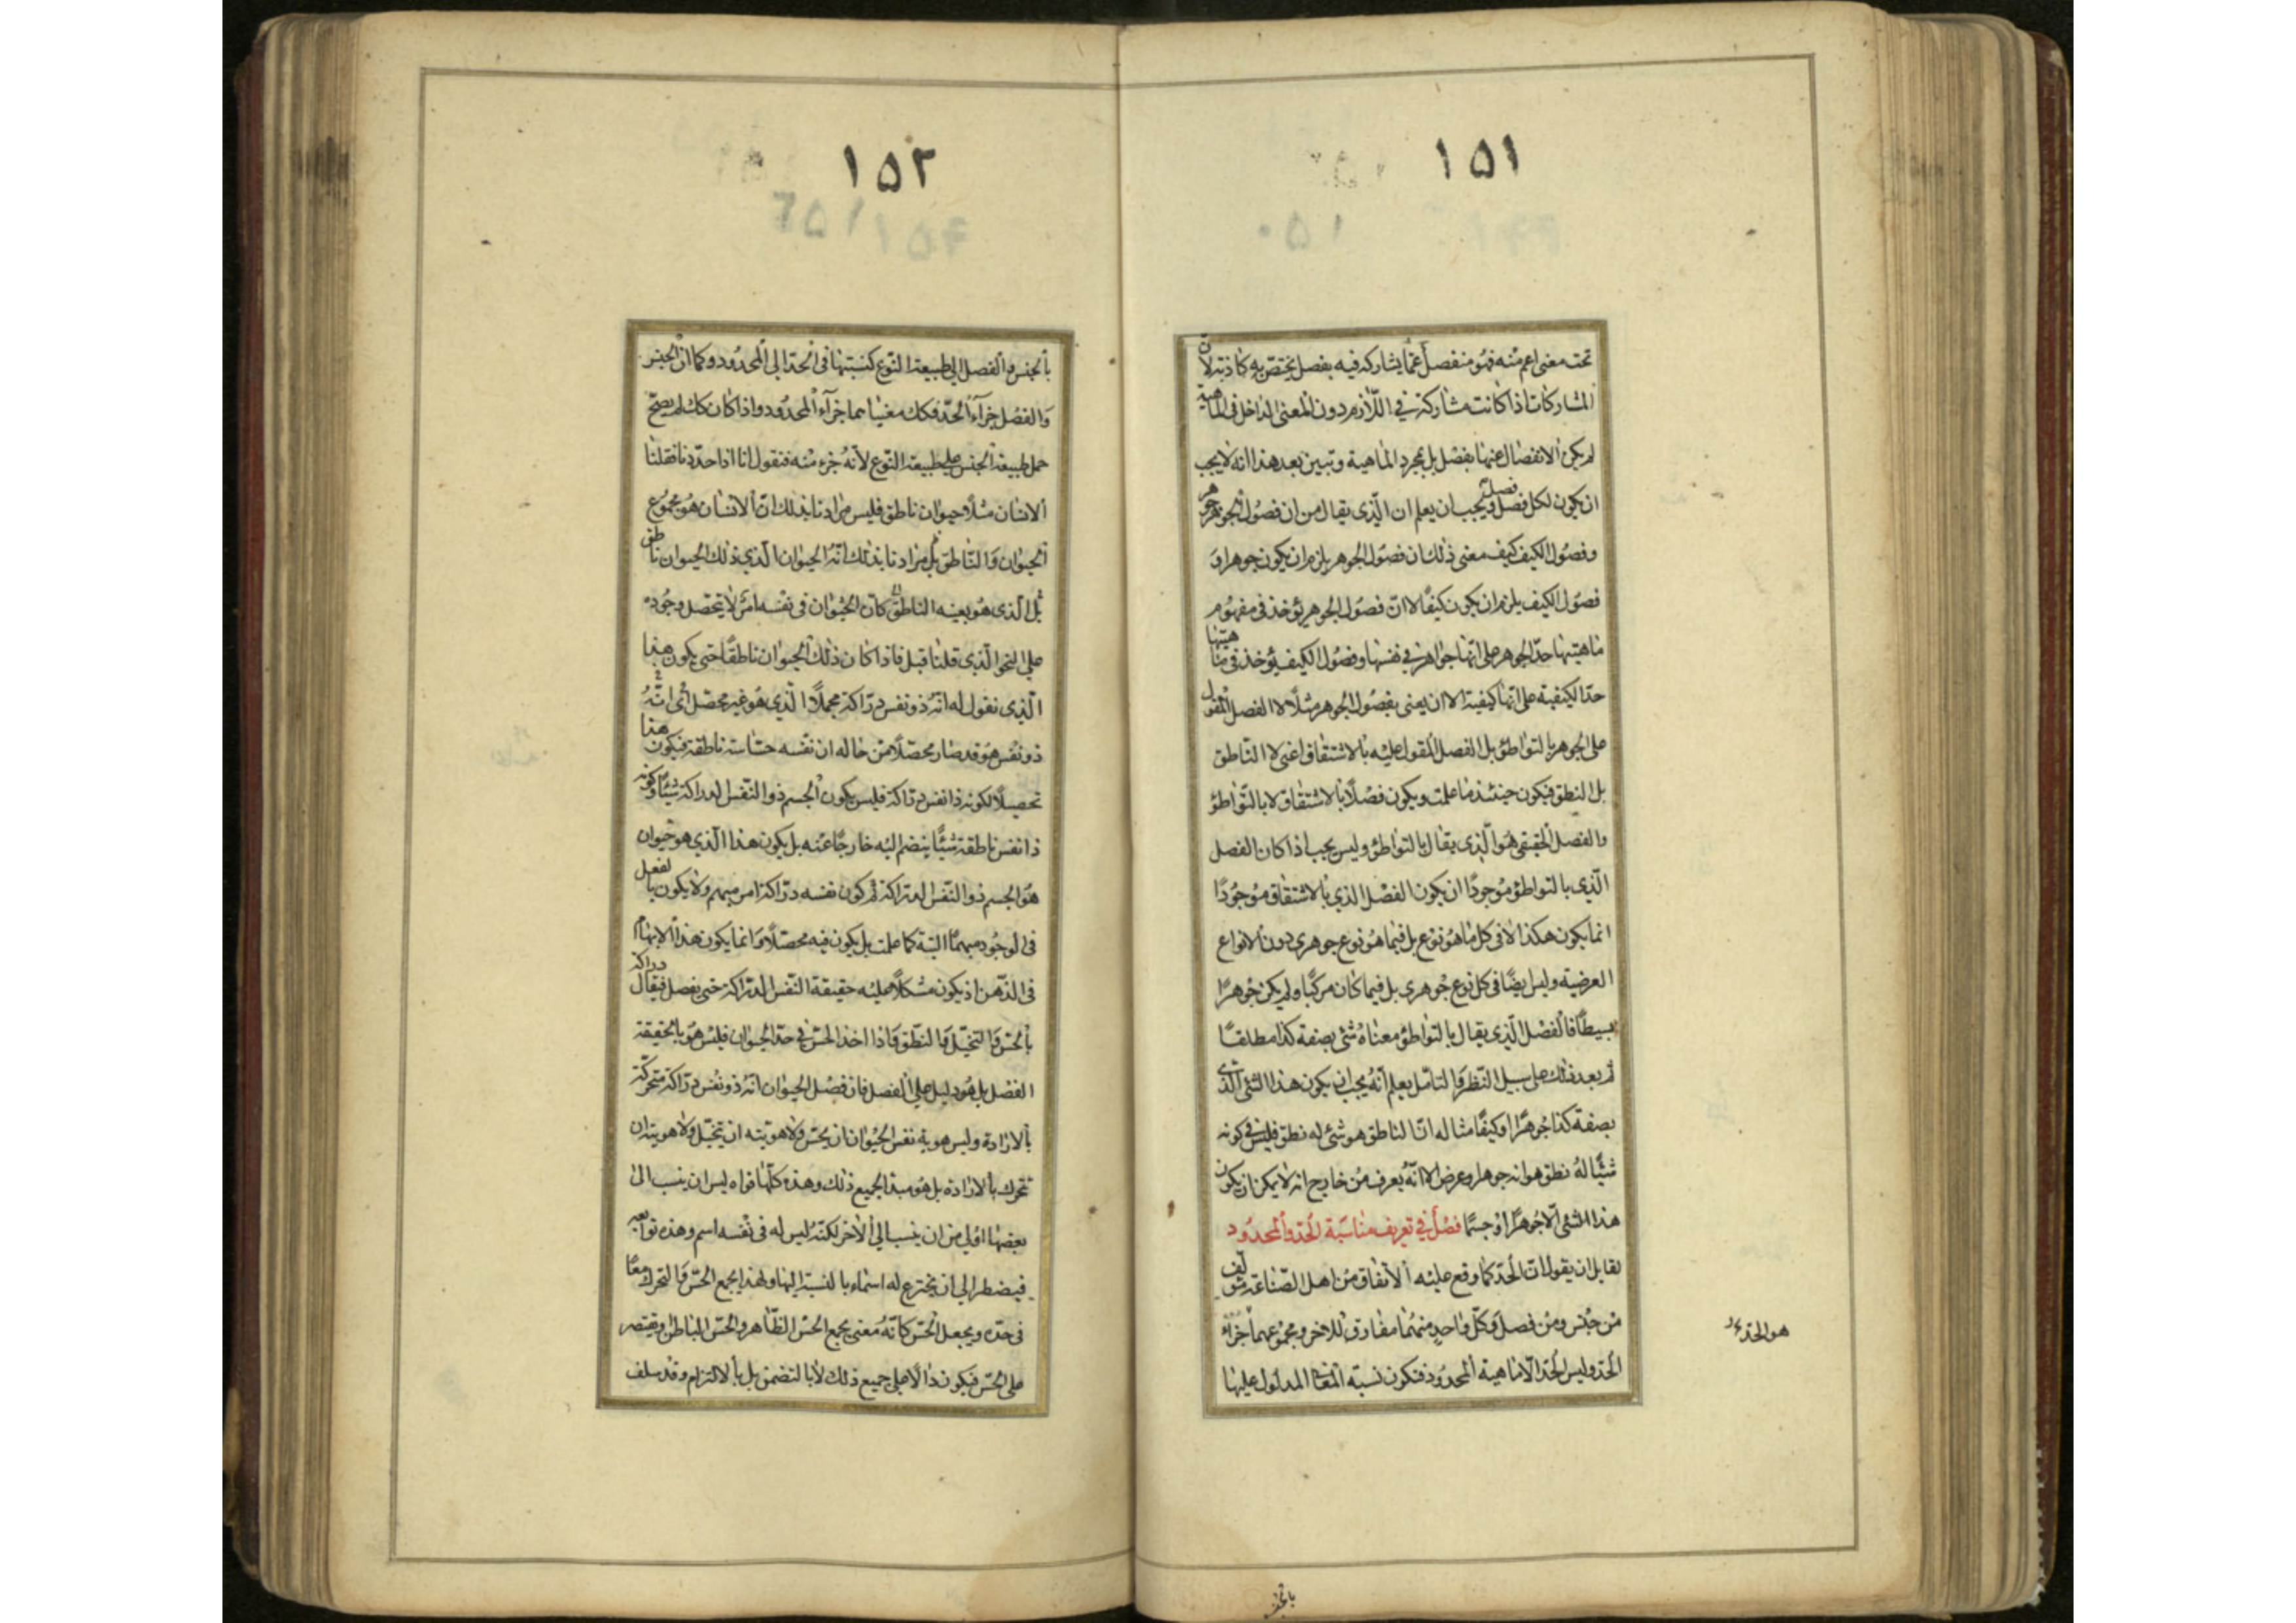 ١٥١
تحت معنى اعم منه فهو منفصل عما يشاركه فيه بفصل يختص به كاذبة لان
المشاركات اذا كانت مشاركة في اللازم دون المعنى الداخل في الماهية
لم يكن الانفصال عنها بفصل بل بمجرد الماهية وتبين بعد هذا انه لا يجب
ان يكون لكل فصل فصل ويجب ان يعلم ان الذى يقال من ان فصول الجوهر جوهر
وفصول الكيف كيف معنى ذلك ان فصول الجوهر يلزم ان يكون جوهرا و
فصول الكيف يلزم ان يكون كيفا لا ان فصول الجوهر يؤخذ في مفهوم
ماهيتها حد الجوهر على انها جواهر في نفسها وفصول الكيف يؤخذ في ماهيتها
حد الكيفية على انها كيفية الا ان يعنى بفصول الجوهر مثلا لا الفصل المقول
على الجوهر بالتواطؤ بل الفصل المقول عليه بالاشتقاق اعنى لا الناطق
بل النطق فيكون حينئذ ما علمت ويكون فصلا بالاشتقاق لا بالتواطؤ
والفصل الحقيقى هو الذى يقال بالتواطؤ وليس يجب اذا كان الفصل
الذى بالتواطؤ موجودا ان يكون الفصل الذي بالاشتقاق موجودا
انما يكون هكذا لا فى كل ما هو نوع بل فيما هو نوع جوهرى دون الانواع
العرضية وليس ايضا فى كل نوع جوهرى بل فيما كان مركبا ولم يكن جوهرا
بسيطا فالفصل الذى يقال بالتواطؤ معناه شئ بصفة كذا مطلقا
ثم بعد ذلك على سبيل النظر والتامل يعلم انه يجب ان يكون هذا الشئ الذى
بصفة كذا جوهرا او كيفا مثاله ان الناطق هو شئ له نطق فليس في كونه
شيئا له نطق هو انه جوهر او عرض الا انه يعرف من خارج انه لا يمكن ان يكون
هذا الشئ الا جوهرا او جسما فصل في تعريف مناسبة الحد والمحدود
لقايل ان يقول ان الحد كما وقع عليه الاتفاق من اهل الصناعة مؤلف
من جنس ومن فصل وكل واحد منهما مفارق للاخر ومجموعهما جزاء
الحد وليس الحد الا ماهية المحدود فتكون نسبة المعانى المدلول عليها
هو الحد
بالجنس
١٥٢
بالجنس والفصل الى طبيعة النوع كنسبتها فى الحد الى المحدود وكما ان الجنس
والفصل جزآء الحد فكك معنياهما جزآء المحدود واذا كان كك لم يصح
حمل طبيعة الجنس على طبيعة النوع لانه جزء منه فنقول انا اذا حددنا فقلنا
الانسان مثلا حيوان ناطق فليس مرادنا بذلك ان الانسان هو مجموع
الحيوان والناطق بل مرادنا بذلك انه الحيوان الذي ذلك الحيوان ناطق
بل الذى هو بعينه الناطق كان الحيوان فى نفسه امر لا يتحصل وجوده
على النحو الذى قلنا قبل فاذا كان ذلك الحيوان ناطقا حتى يكون هذا
الذى نقول له انه ذو نفس دراكة مجملا الذي هو غير محصل اى انه
ذو نفس هو قد صار محصلا من حاله ان نفسه حساسة ناطقة فيكون هذا
تحصيلا لكونه ذا نفس دراكة فليس يكون الجسم ذو النفس الدراكة شيئا وكونه
ذا نفس ناطقة شيئا ينضم اليه خارجا عنه بل يكون هذا الذي هو حيوان
هو الجسم ذو النفس الدراكة ثم كون نفسه دراكة امر مبهم ولا يكون بالفعل
فى الوجود مبهما البتة كما علمت بل يكون فيه محصلا وانما يكون هذا الابهام
فى الذهن اذ يكون مشكلا عليه حقيقة النفس الدراكة حتى يفصل فيقال دراكة
بالحس والتخيل والنطق واذا اخذ الحس في حد الحيوان فليس هو بالحقيقة
الفصل بل هو دليل على الفصل فان فصل الحيوان انه ذو نفس دراكة متحركة
بالارادة وليس هوية نفس الحيوان ان يحس ولا هويته ان يتخيل ولا هويته ان
تتحرك بالارادة بل هو مبدا لجميع ذلك وهذه كلها قواه ليس ان ينسب الى
بعضها اولى من ان ينسب الي الاخر لكنه ليس له فى نفسه اسم وهذه توابعه
فيضطر الي ان يخترع له اسماء بالنسبة اليها ولهذا يجمع الحس والتحرك معا
فى حده ويجعل الحس كانه معنى يجمع الحس الظاهر والحس الباطن ويقتصر
على الحس فيكون دالا على جميع ذلك لا بالتضمن بل بالالتزام وقد سلف